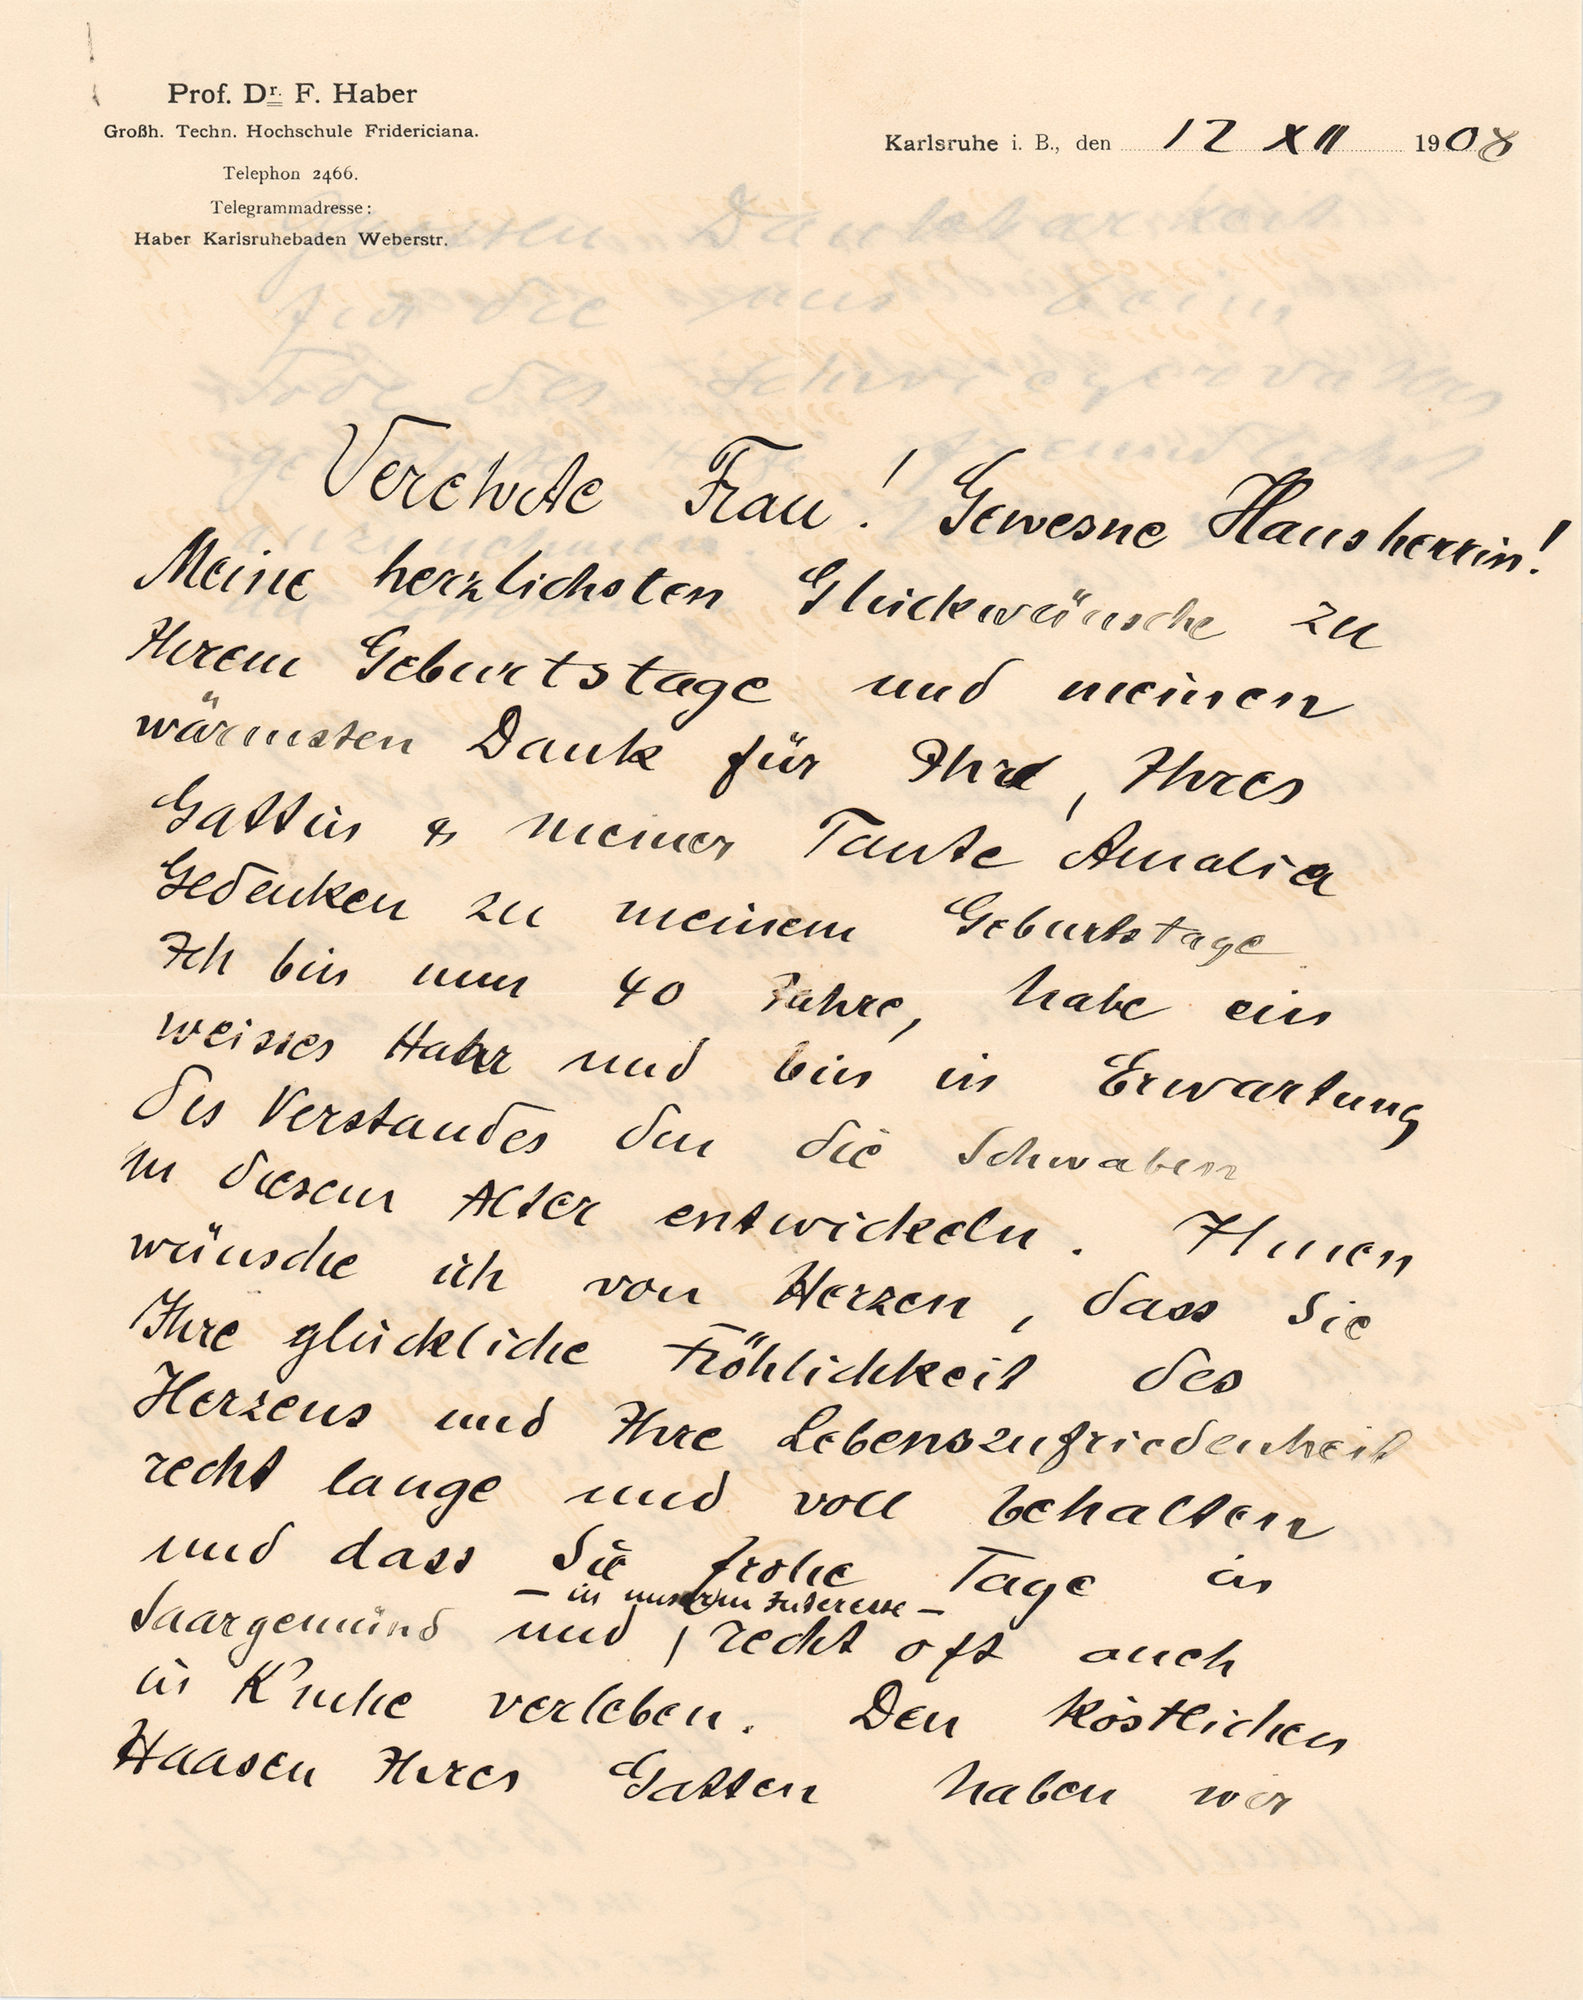 Prof. Dr. F. Haber
Großh. Techn. Hochschule Fridericiana.
Telephon 2466.
Telegrammadresse:
Haber Karlsruhebaden Weberstr.
Karlsruhe i. B., den 12 XII 1908
Verehrte Frau! Gewesne Hausherrin!
Meine herzlichsten Glückwünsche zu
Ihrem Geburtstage und meinen
wärmsten Dank für Ihre, Ihres
Gatten & meiner Tante Amalia
Gedenken zu meinem Geburtstage
Ich bin nun 40 Jahre, habe ein
weisses Haar und bin in Erwartung
des Verstandes den die Schwaben
in diesem Alter entwickeln. Ihnen
wünsche ich von Herzen, dass Sie
Ihre glückliche Fröhlichkeit des
Herzens und Ihre Lebenszufriedenheit
recht lange und voll behalten
und dass Sie frohe Tage in
– in unserm Interesse –
Saargemünd und recht oft auch
in K'ruhe verleben. Den köstlichen
Haasen Ihres Gatten haben wir